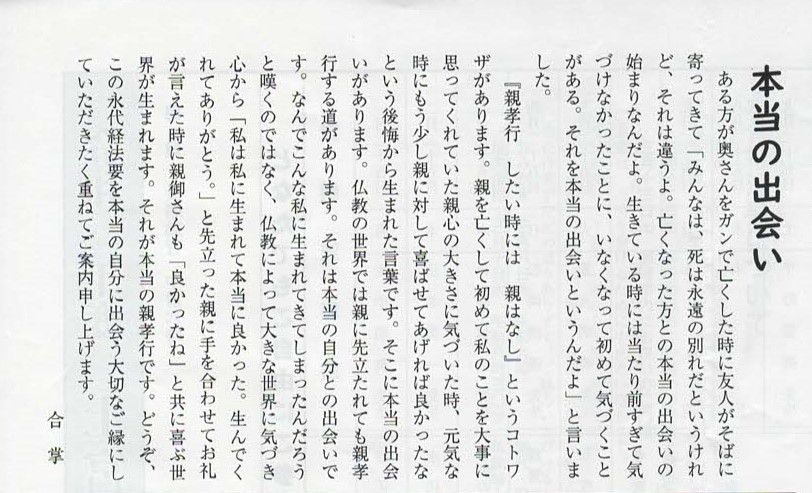 本当の出会い
ある方が奥さんをガンで亡くした時に友人がそばに
寄ってきて「みんなは、死は永遠の別れだというけれ
ど、それは違うよ。亡くなった方との本当の出会いの
始まりなんだよ。生きている時には当たり前すぎて気
づけなかったことに、いなくなって初めて気づくこと
がある。それを本当の出会いというんだよ」と言いま
した。
『親孝行　したい時には　親はなし』というコトワ
ザがあります。親を亡くして初めて私のことを大事に
思ってくれていた親心の大きさに気づいた時、元気な
時にもう少し親に対して喜ばせてあげれば良かったな
という後悔から生まれた言葉です。そこに本当の出会
いがあります。仏教の世界では親に先立たれても親孝
行する道があります。それは本当の自分との出会いで
す。なんでこんな私に生まれてきてしまったんだろう
と嘆くのではなく、仏教によって大きな世界に気づき
心から「私は私に生まれて本当に良かった。生んでく
れてありがとう。」と先立った親に手を合わせてお礼
が言えた時に親御さんも「良かったね」と共に喜ぶ世
界が生まれます。それが本当の親孝行です。どうぞ、
この永代経法要を本当の自分に出会う大切なご縁にし
ていただきたく重ねてご案内申し上げます。
合掌